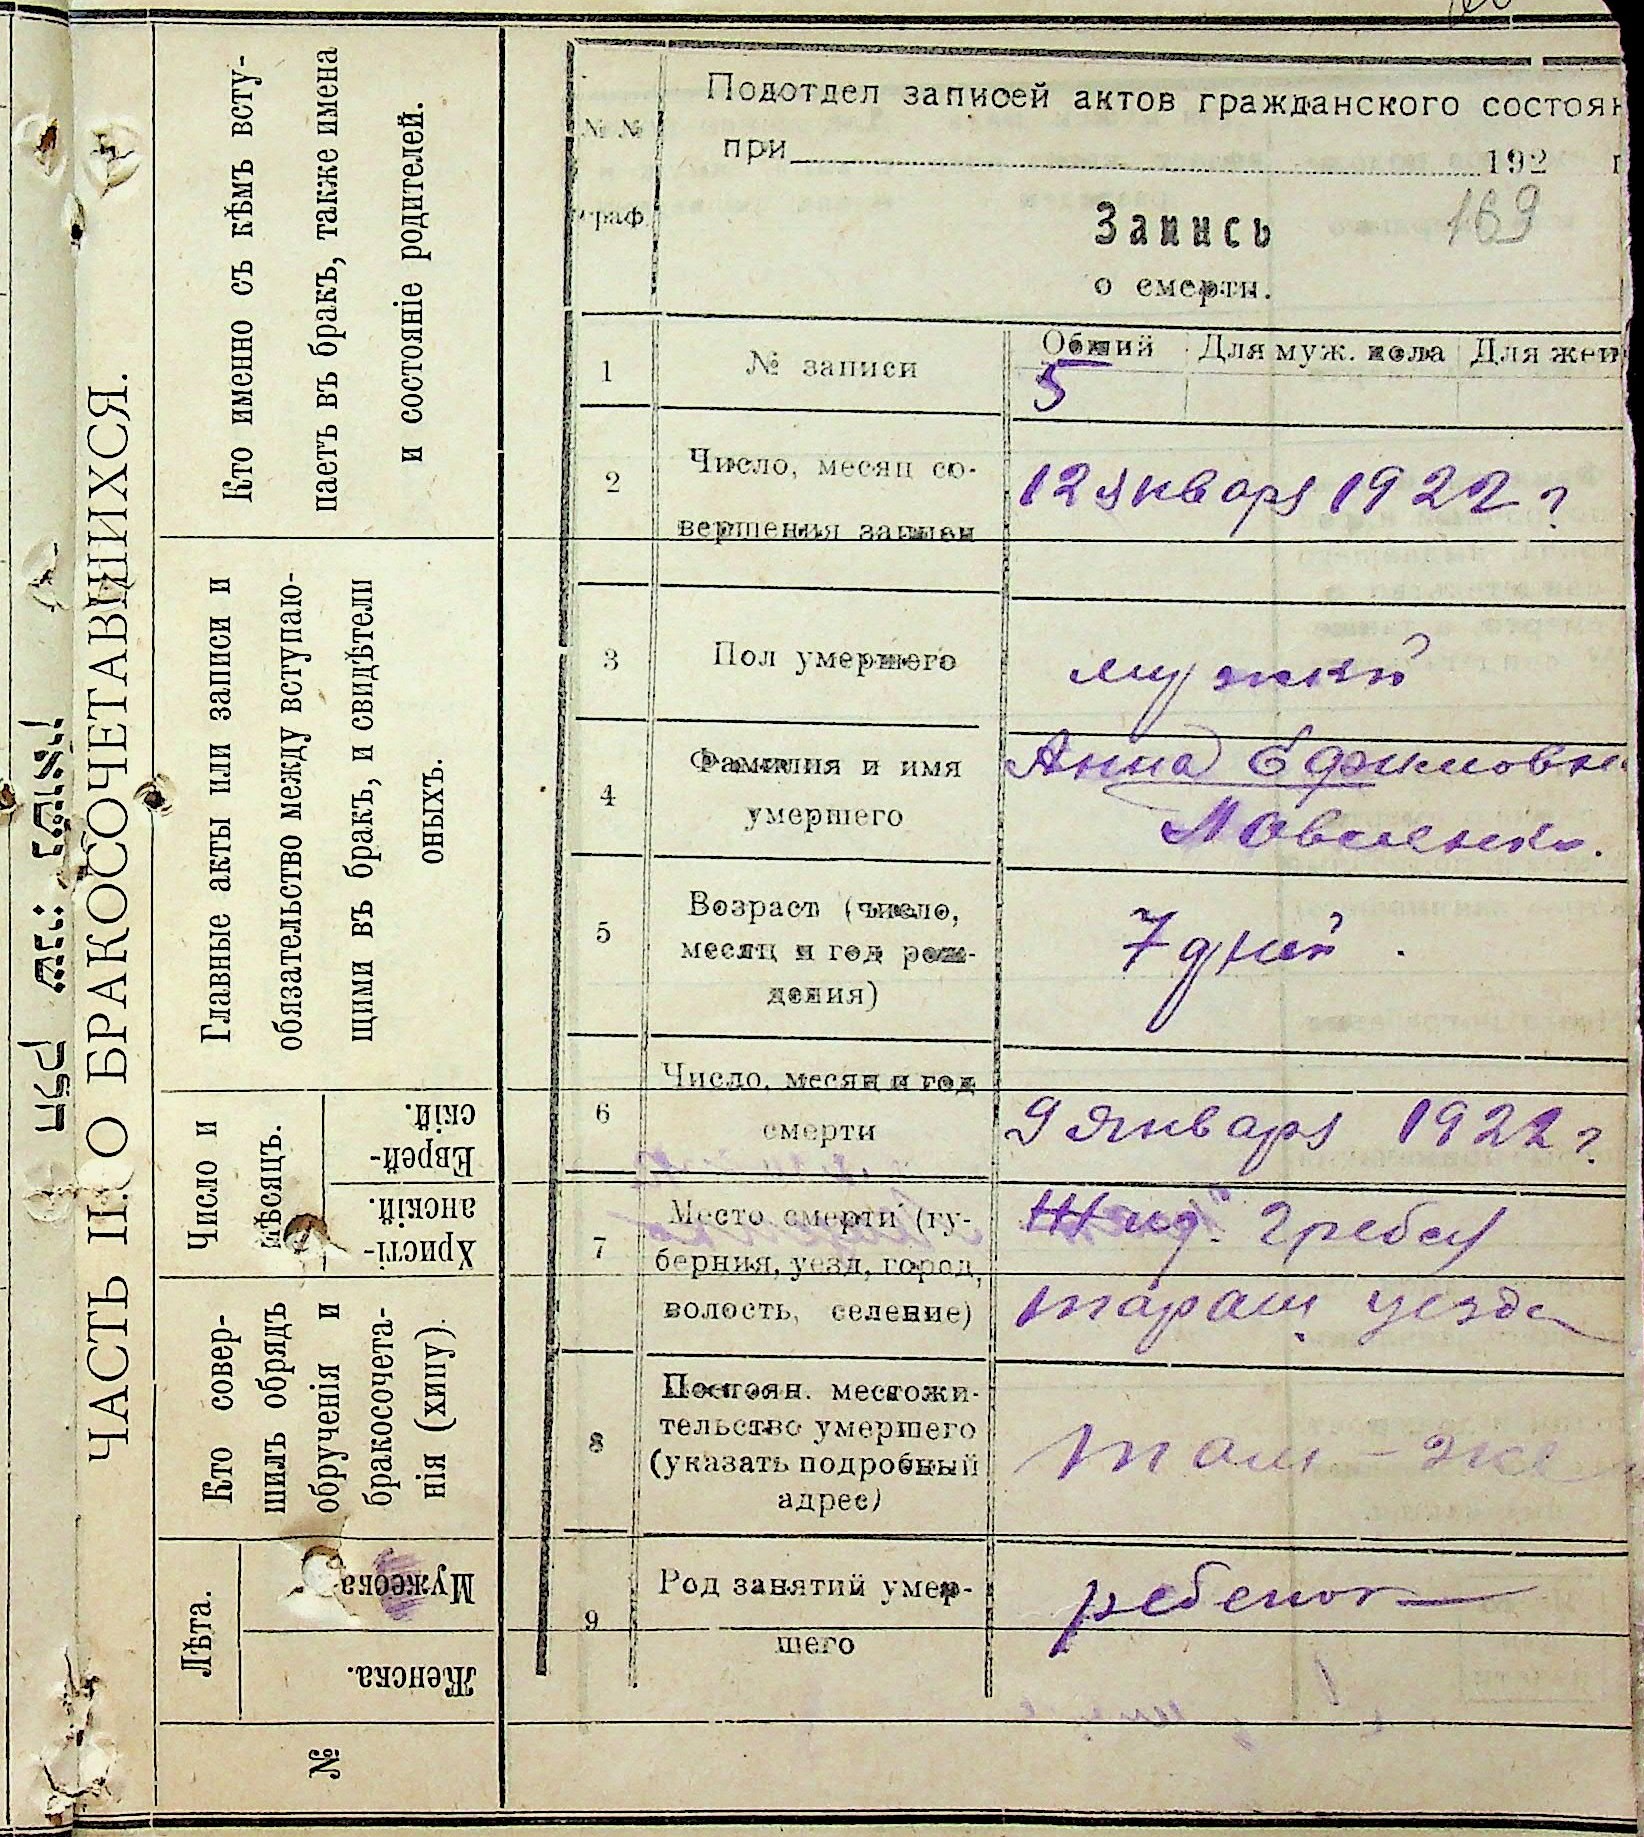 ЧАСТЬ II. О БРАКОСОЧЕТАВШИХСЯ.
Кто именно съ кѣмъ всту-
паетъ въ бракъ, также имена
и состояніе родителей.
Главные акты или записи и
обязательство между вступаю-
щими въ бракъ, и свидѣтели
оныхъ.
Число и
мѣсяцъ.
Еврей-
скій.
Христі-
анскій.
Кто совер-
шилъ обрядъ
обрученія и
бракосочета-
нія (хипу).
Лѣта.
Мужеска
Женска.
№
№ №
граф
Подотдел записей актов гражданского состоян
при 192 г
169
Запись
о смерти.
1
№ записи
Общий
Для муж. пола
Для жен
5
2
Число, месяц со-
вершения записи
12 Января 1922 г
3
Пол умершего
мужкй
4
Фамилия и имя
умершего
Анна Ефимовн
5
Возраст (число,
месяц и год рож-
дения)
7 дней.
6
Число, месяц и год
смерти
9 Января 1922 г.
7
Место смерти (гу-
берния, уезд, город,
волость, селение)
Жид. Гребля
Таращ. уезда
8
Постоян. местожи-
тельство умершего
(указать подробный
адрес)
там-же
9
Род занятий умер-
шего
ребенок